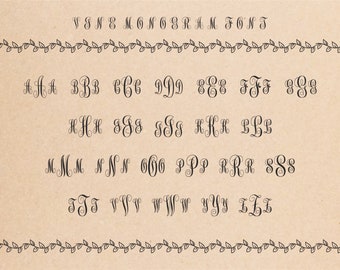 VINE MONOGRAM FONT
AAA BBB CCC DDD EEE FFF GGG
HHH KKK LLL
MMM NNN OOO PPP RRR SSS
TTT VVV WWW YYY